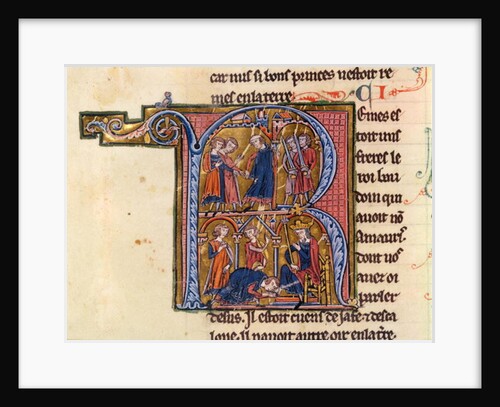 car nus si bons princes nestoit re
mes en la terre. CI
R
Emes es
toit uns
freres le
roi bau
doin qui
auoit nõ
amaurí.
dont uoˢ
aues oi
parler
desus. Il estoit cuens de iafe ⁊ desca
lone. Il nauoit autre oir en latre.